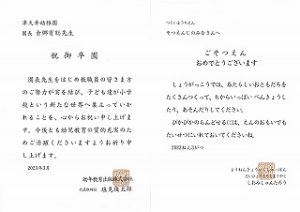 津久井幼稚園
園長
祝御卒園
園長先生をはじめ教職員の皆さま方
のご努力が実を結び、子ども達が小学
校という新たな世界へ巣立っていか
れることを、心からお祝い申し上げ
ます。今後とも幼児教育の質的充実のた
めにご活躍くださいますようお祈り申
し上げます。
2023年3月
つくいようちえん
そつえんじのみなさんへ
ごそつえん
おめでとうございます
しょうがっこうでは、あたらしいおともだちを
たくさんつくって、ちからいっぱいべんきょうした
り、あそんだりしてください。
ぴかぴかのらんどせるには、えんのおもいでも
たいせつにいれておいてくださいね。
2023ねん3がつ